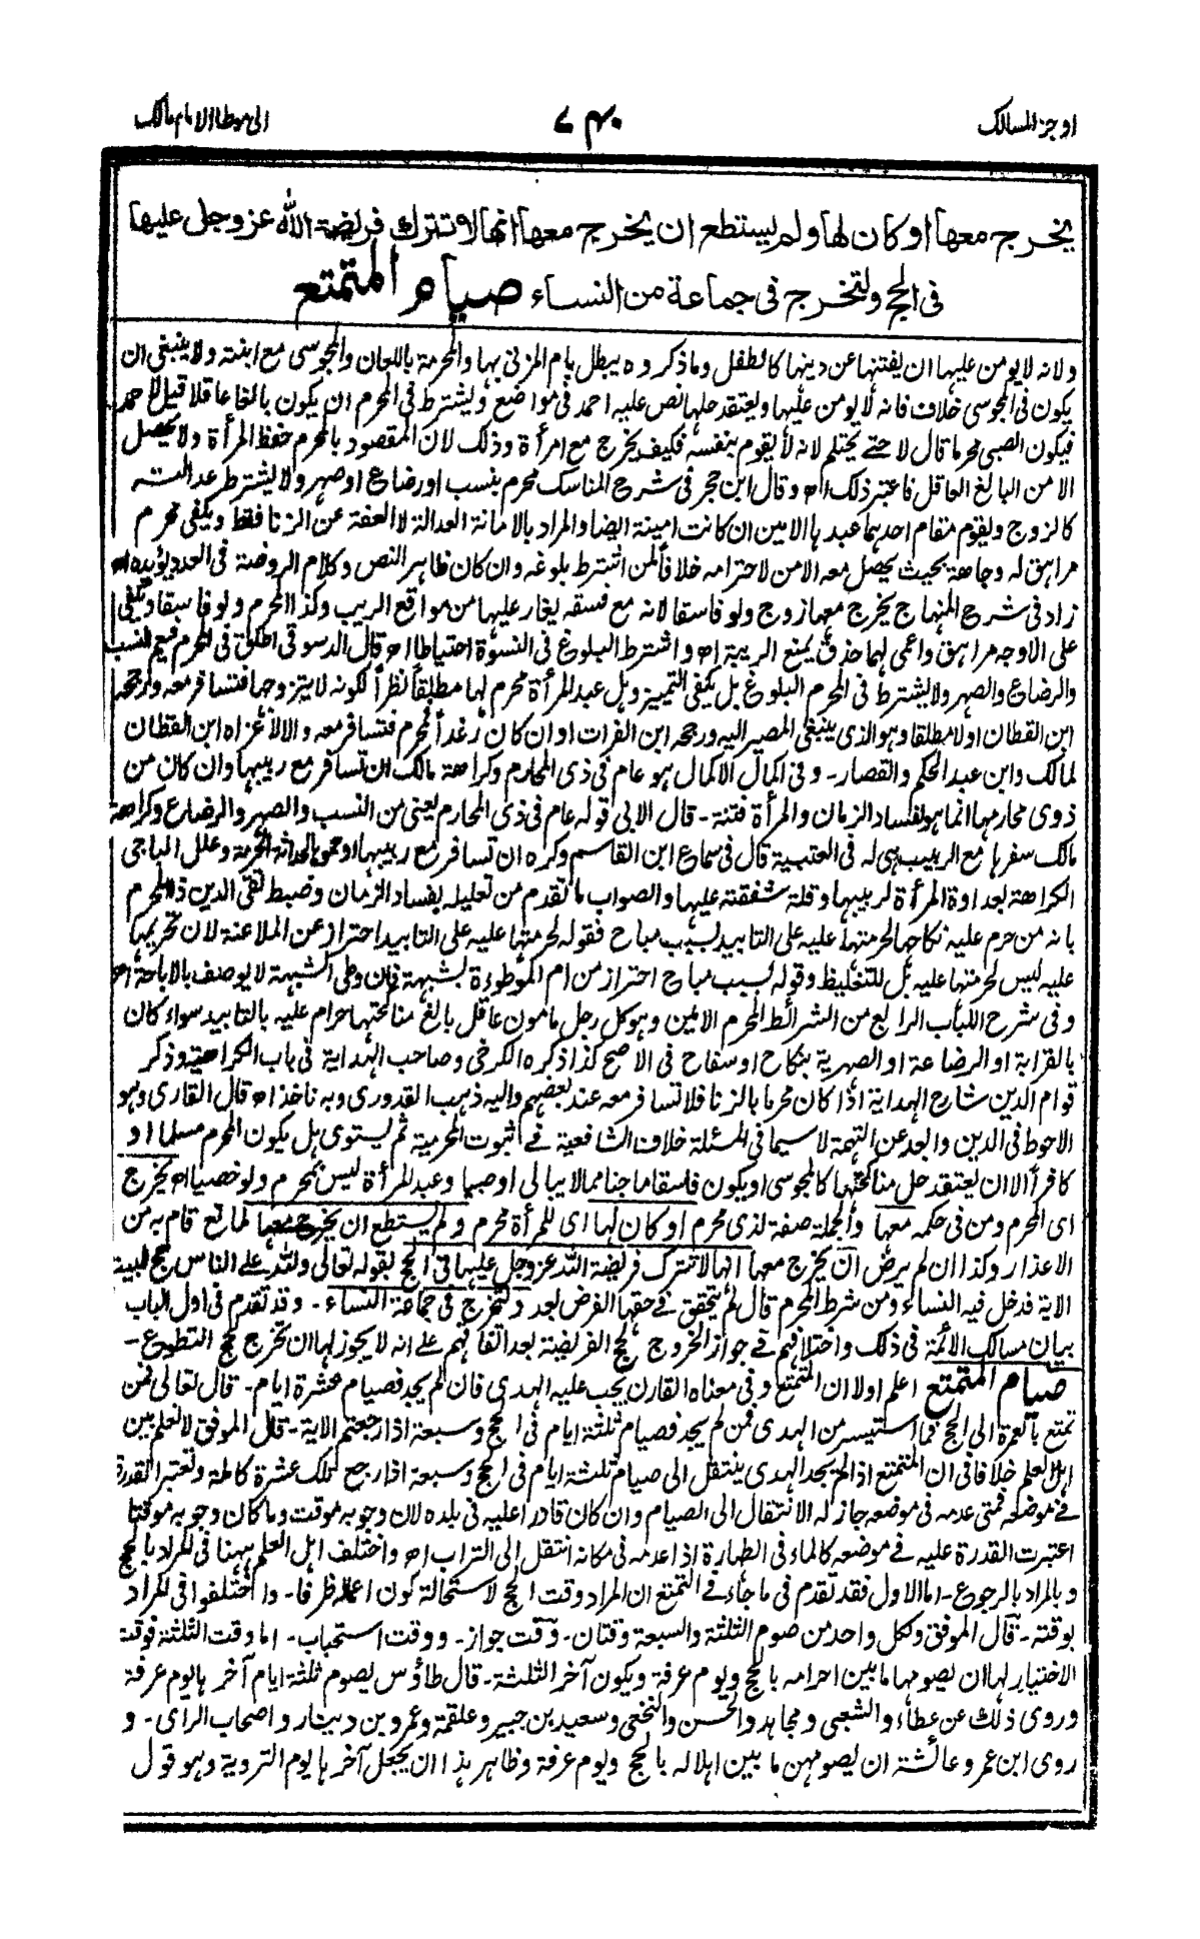 اوجز المسالك
٧٤٠
الى موطا الامام مالك
يخرج معها او كان لها ولم يستطع ان يخرج معها انها لا تترك فريضة الله عز وجل عليها
فى الحج ولتخرج فى جماعة من النساء صيام المتمتع
ولانه لا يومن عليها ان يفتنها عن دينها كالطفل وما ذكروه يبطل بام المزنى بها والمحرمة باللعان والمجوسى مع ابنته ولا ينبغى ان
يكون فى المجوسى خلاف فانه لا يومن عليها ويعتقد حلها نص عليه احمد فى مواضع ويشترط فى المحرم ان يكون بالغا عاقلا قيل لاحمد
فيكون الصبى محرما قال لا حتى يحتلم لانه لا يقوم بنفسه فكيف يخرج مع امرأة وذلك لان المقصود بالمحرم حفظ المرأة ولا يحصل
الا من البالغ العاقل فاعتبر ذلك اه وقال ابن حجر فى شرح المناسك محرم بنسب او رضاع او صهر ولا يشترط عدالته
كالزوج ويقوم مقام احدهما عبدها الامين ان كانت امينة ايضا والمراد بالامانة العدالة لا العفة عن الزنا فقط ويكفى محرم
مراهق له وجاهة بحيث يحصل معه الامن لاحترامه خلافا لمن اشترط بلوغه وان كان ظاهر النص وكلام الروضة فى العدد يؤيده اه
زاد فى شرح المنهاج يخرج معها زوج ولو فاسقا لانه مع فسقه يغار عليها من مواقع الريب وكذا المحرم ولو فاسقا ويكفى
على الاوجه مراهق واعمى لهما حذق يمنع الريبة اه واشترط البلوغ فى النسوة احتياطا اه قال الدسوقى اطلق فى المحرم فيعم النسب
والرضاع والصهر ولا يشترط فى المحرم البلوغ بل يكفى التمييز وهل عبد المرأة محرم لها مطلقا نظرا لكونه لا يتزوجها فتسافر معه ورجحه
ابن القطان او لا مطلقا وهو الذى ينبغى المصير اليه ورجحه ابن الفرات او ان كان وغدا فمحرم فتسافر معه والا لا عزاه ابن القطان
لمالك وابن عبد الحكم والقصار - وفى اكمال الاكمال هو عام فى ذى المحارم وكراهة مالك ان تسافر مع ربيبها وان كان من
ذوى محارمها انما هو لفساد الزمان والمرأة فتنة - قال الابى قوله عام فى ذى المحارم يعنى من النسب والصهر والرضاع وكراهة
مالك سفرها مع الربيب هى له فى العتبية قال فى سماع ابن القاسم وكره ان تسافر مع ربيبها او حموها لحداثة الحرمة وعلل الباجى
الكراهة بعداوة المرأة لربيبها وقلة شفقته عليها والصواب ما تقدم من تعليله بفساد الزمان وضبط تقى الدين ذا المحرم
بانه من حرم عليه نكاحها لحرمتها عليه على التابيد بسبب مباح فقوله لحرمتها عليه على التابيد احتراز عن الملاعنة لان تحريمها
عليه ليس لحرمتها عليه بل للتغليظ وقوله بسبب مباح احتراز من ام الموطوءة بشبهة فان وطى الشبهة لا يوصف بالاباحة اه
وفى شرح اللباب الرابع من الشرائط المحرم الامين وهو كل رجل مامون عاقل بالغ مناكحتها حرام عليه بالتابيد سواء كان
بالقرابة او الرضاعة او الصهرية بنكاح او سفاح فى الاصح كذا ذكره الكرخى وصاحب الهداية فى باب الكراهية وذكر
قوام الدين شارح الهداية اذا كان محرما بالزنا فلا تسافر معه عند بعضهم واليه ذهب القدورى وبه ناخذ اه قال القارى وهو
الاحوط فى الدين وابعد عن التهمة لا سيما فى المسئلة خلاف الشافعية فى ثبوت المحرمية ثم يستوى هل يكون المحرم مسلما او
كافرا الا ان يعتقد حل مناكحتها كالمجوسى او يكون فاسقا ماجنا مما لا يبالى او صبيا وعبد المرأة ليس بمحرم ولو خصيا اه يخرج
اى المحرم ومن فى حكمه معها والجملة صفة لذى محرم او كان لها اى للمرأة محرم ولم يستطع ان يخرج معها لمانع قام به من
الاعذار وكذا ان لم يرض ان يخرج معها انها لا تترك فريضة الله عز وجل عليها فى الحج لقوله تعالى ولله على الناس حج البيت
الاية فدخل فيه النساء ومن شرط المحرم قال لم يتحقق فى حقها الفرض بعد ولتخرج فى جماعة النساء - وقد تقدم فى اول الباب
بيان مسالك الائمة فى ذلك واختلافهم فى جواز الخروج لحج الفريضة بعد اتفاقهم على انه لا يجوز لها ان تخرج لحج التطوع -
صيام المتمتع اعلم اولا ان المتمتع وفى معناه القارن يجب عليه الهدى فان لم يجد فصيام عشرة ايام - قال تعالى فمن
تمتع بالعمرة الى الحج فما استيسر من الهدى فمن لم يجد فصيام ثلثة ايام فى الحج وسبعة اذا رجعتم الاية - قال الموفق لا نعلم بين
اهل العلم خلافا فى ان المتمتع اذا لم يجد الهدى ينتقل الى صيام ثلثة ايام فى الحج وسبعة اذا رجع تلك عشرة كاملة وتعتبر القدرة
فى موضعه فمتى عدمه فى موضعه جاز له الانتقال الى الصيام وان كان قادرا عليه فى بلده لان وجوبه موقت وما كان وجوبه موقتا
اعتبرت القدرة عليه فى موضعه كالماء فى الطهارة اذا عدمه فى مكانه انتقل الى التراب اه واختلف اهل العلم ههنا فى المراد بالحج
وبالمراد بالرجوع - اما الاول فقد تقدم فى ما جاء فى التمتع ان المراد وقت الحج لاستحالة كون اعماله ظرفا - واختلفوا فى المراد
بوقته - قال الموفق ولكل واحد من صوم الثلثة والسبعة وقتان - وقت جواز - ووقت استحباب - اما وقت الثلثة فوقت
الاختيار لها ان يصومها ما بين احرامه بالحج ويوم عرفة ويكون آخر الثلثة - قال طاؤس يصوم ثلثة ايام آخرها يوم عرفة
وروى ذلك عن عطاء والشعبى ومجاهد والحسن والنخعى وسعيد بن جبير وعلقمة وعمرو بن دينار واصحاب الراى - و
روى ابن عمر وعائشة ان يصومهن ما بين اهلاله بالحج ويوم عرفة وظاهر هذا ان يجعل آخرها يوم التروية وهو قول